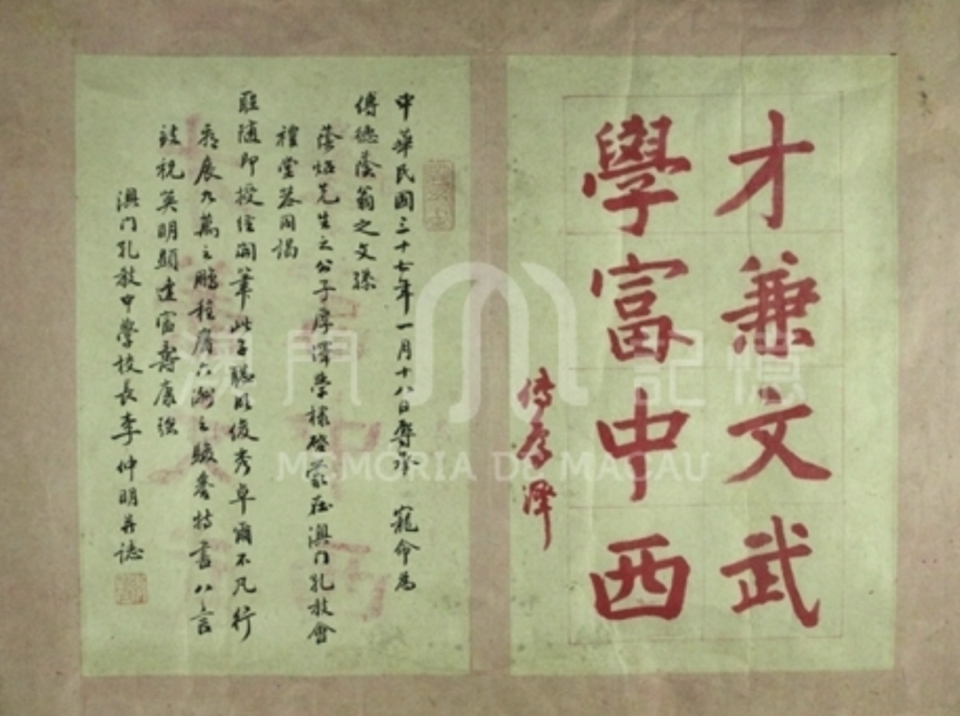 才兼文武
學富中西
傅厚澤
中華民國三十七年一月十八日尊承 寵命為
傅德蔭翁之文孫
蔭炤先生之公子厚澤學棣啓蒙在澳門孔教會
禮堂恭同謁
聖隨即授經開筆此子聰明俊秀卓爾不凡行
看展九萬之鵬程膺六洲之駿譽特書八言
敬祝英明顯達富壽康強
澳門孔教中學校長李仲明并誌
澳門記憶
MEMÓRIA DE MACAU